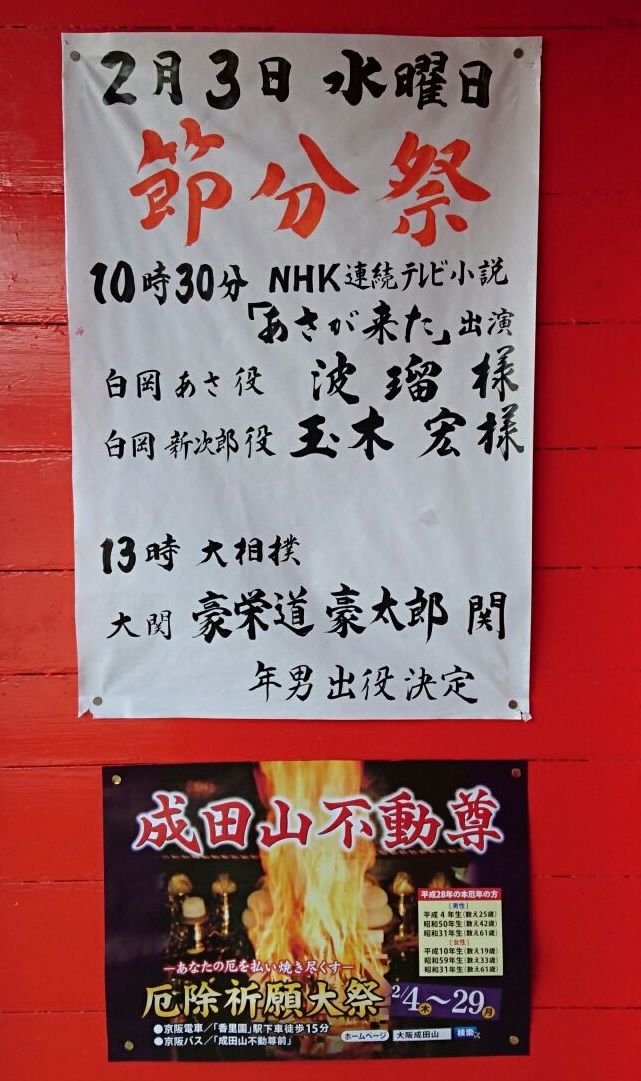 2月3日 水曜日
節分祭
10時30分 NHK連続テレビ小説
「あさが来た」出演
白岡 あさ 役 波瑠 様
白岡 新次郎 役 玉木 宏 様
13時 大相撲
大関 豪栄道 豪太郎 関
年男 出役 決定
成田山不動尊
平成28年の本厄年の方
[男性]
平成4年生(数え25歳)
昭和50年生(数え42歳)
昭和31年生(数え61歳)
[女性]
平成10年生(数え19歳)
昭和59年生(数え33歳)
昭和31年生(数え61歳)
―あなたの厄を払い焼き尽くす―
厄除祈願大祭 2/4木～29月
●京阪電車/「香里園」駅下車徒歩15分
●京阪バス/「成田山不動尊前」
ホームページ 大阪成田山 検索